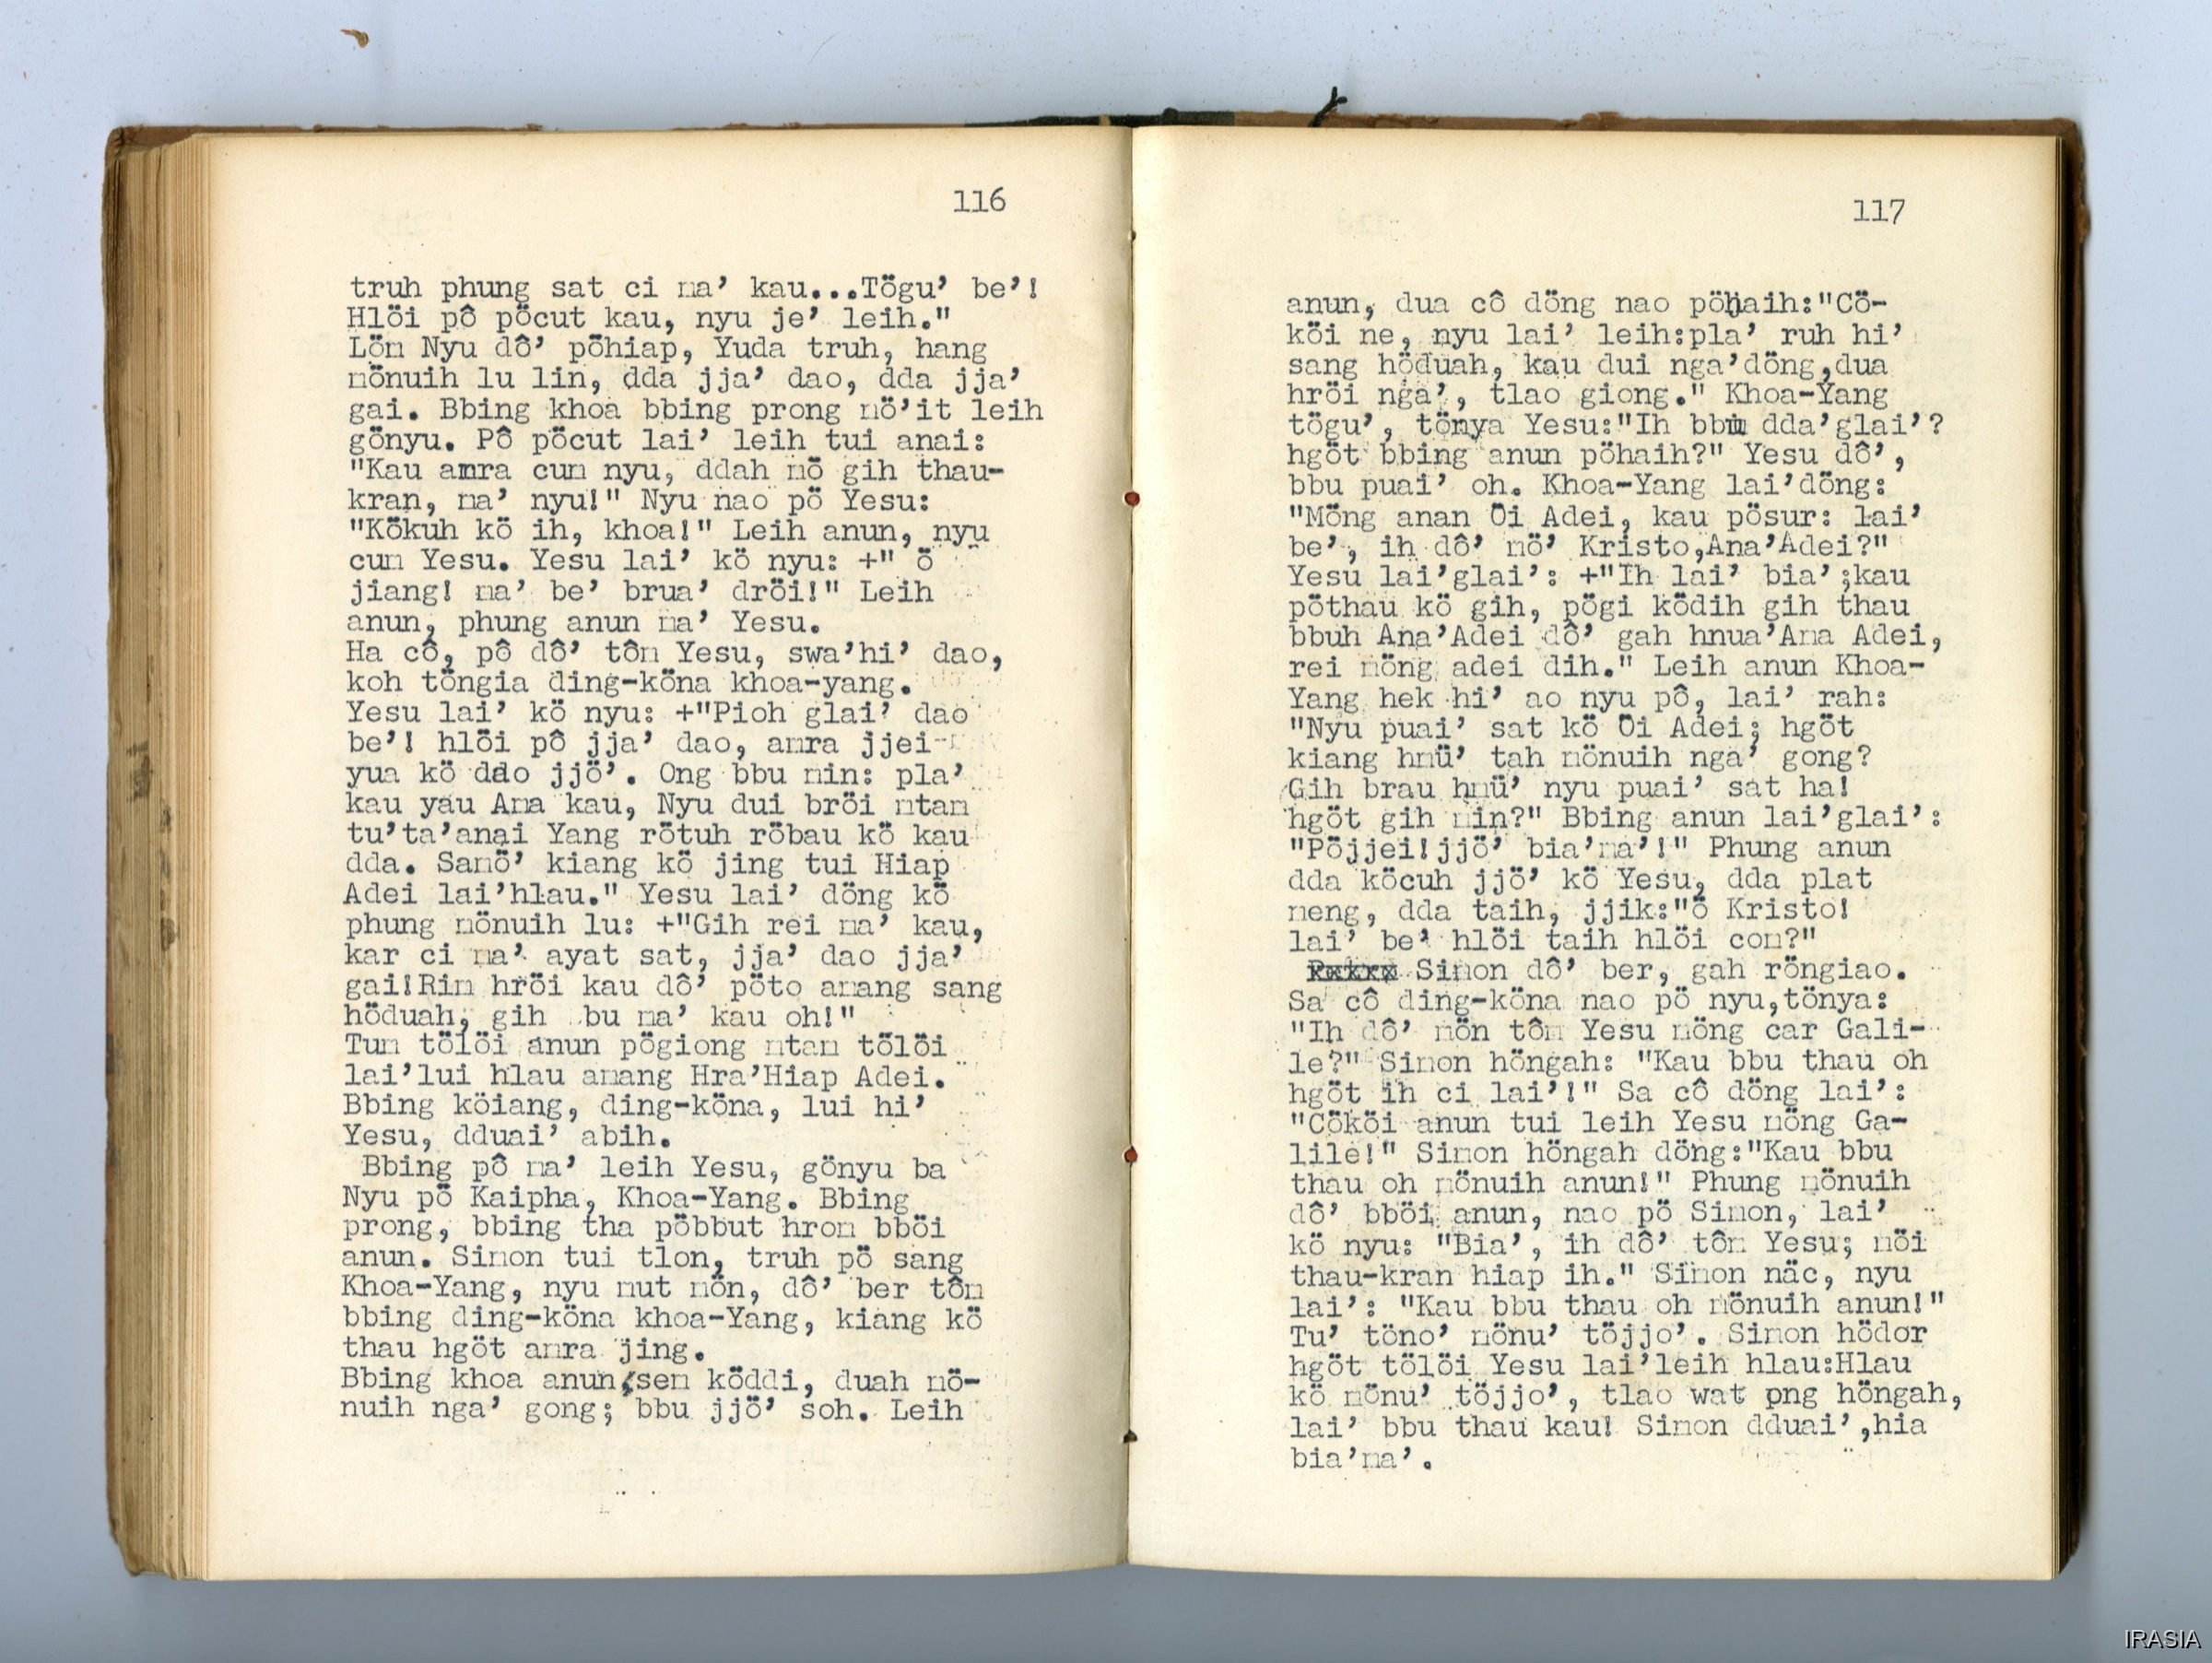 116
truh phung sat ci ma’ kau...Tögu’ be’!
Hlöi pô pöcut kau, nyu je’ leih."
Löm Nyu dô’ pöhiap, Yuda truh, hang
mönuih lu lin, dda jja’ dao, dda jja’
gai. Bbing khoa bbing prong mö’it leih
gönyu. Pô pöcut lai’ leih tui anai:
"Kau amra cum nyu, ddah mö gih thau-
kran, ma’ nyu!" Nyu nao pö Yesu:
"Kökuh kö ih, khoa!" Leih anun, nyu
cum Yesu. Yesu lai’ kö nyu: +" ö
jiang! ma’ be’ brua’ dröi!" Leih
anun, phung anun ma’ Yesu.
Ha cô, pô dô’ tôm Yesu, swa’hi’ dao,
koh töngia ding-köna khoa-yang.
Yesu lai’ kö nyu: +"Pioh glai’ dao
be’! hlöi pô jja’ dao, amra jjei-
yua kö dao jjö’. Ong bbu min: pla’
kau yau Ama kau, Nyu dui bröi mtam
tu’ta’anai Yang rötuh röbau kö kau
dda. Samö’ kiang kö jing tui Hiap
Adei lai’hlau." Yesu lai’ döng kö
phung mönuih lu: +"Gih rei ma’ kau,
kar ci ma’ ayat sat, jja’ dao jja’
gai!Rim hröi kau dô’ pöto amang sang
höduah, gih bu ma’ kau oh!"
Tum tölöi anun pögiong mtam tölöi
lai’lui hlau amang Hra’Hiap Adei.
Bbing köiang, ding-köna, lui hi’
Yesu, dduai’ abih.
Bbing pô ma’ leih Yesu, gönyu ba
Nyu pö Kaipha, Khoa-Yang. Bbing
prong, bbing tha pöbbut hrom bböi
anun. Simon tui tlon, truh pö sang
Khoa-Yang, nyu mut mön, dô’ ber tôm
bbing ding-köna khoa-Yang, kiang kö
thau hgöt amra jing.
Bbing khoa anun sem köddi, duah mö-
nuih nga’ gong; bbu jjö’ soh. Leih
117
anun, dua cô döng nao pöhaih:"Cö-
köi ne, nyu lai’ leih:pla’ ruh hi’
sang höduah, kau dui nga’döng,dua
hröi nga’, tlao giong." Khoa-Yang
tögu’, tönya Yesu:"Ih dda’glai’?
hgöt bbing anun pöhaih?" Yesu dô’,
bbu puai’ oh. Khoa-Yang lai’döng:
"Möng anan Öi Adei, kau pösur: lai’
be’, ih dô’ mö’ Kristo,Ana’Adei?"
Yesu lai’glai’: +"Ih lai’ bia’;kau
pöthau kö gih, pögi ködih gih thau
bbuh Ana’Adei dô’ gah hnua’Ama Adei,
rei möng adei dih." Leih anun Khoa-
Yang hek hi’ ao nyu pô, lai’ rah:
"Nyu puai’ sat kö Öi Adei; hgöt
kiang hmü’ tah mönuih nga’ gong?
Gih brau hmü’ nyu puai’ sat ha!
hgöt gih min?" Bbing anun lai’glai’:
"Pöjjei!jjö’ bia’ma’!" Phung anun
dda köcuh jjö’ kö Yesu, dda plat
meng, dda taih, jjik:"ö Kristo!
lai’ be’ hlöi taih hlöi com?"
Simon dô’ ber, gah röngiao.
Sa cô ding-köna nao pö nyu,tönya:
"Ih dô’ mön tôm Yesu möng car Gali-
le?" Simon höngah: "Kau bbu thau oh
hgöt ih ci lai’!" Sa cô döng lai’:
"Cököi anun tui leih Yesu möng Ga-
lile!" Simon höngah döng:"Kau bbu
thau oh mönuih anun!" Phung mönuih
dô’ bböi anun, nao pö Simon, lai’
kö nyu: "Bia’, ih dô’ tôm Yesu; möi
thau-kran hiap ih." Simon näc, nyu
lai’: "Kau bbu thau oh mönuih anun!"
Tu’ töno’ mönu’ töjjo’. Simon hödor
hgöt tölöi Yesu lai’leih hlau:Hlau
kö mönu’ töjjo’, tlao wat png höngah,
lai’ bbu thau kau! Simon dduai’,hia
bia’ma’.
IRASIA